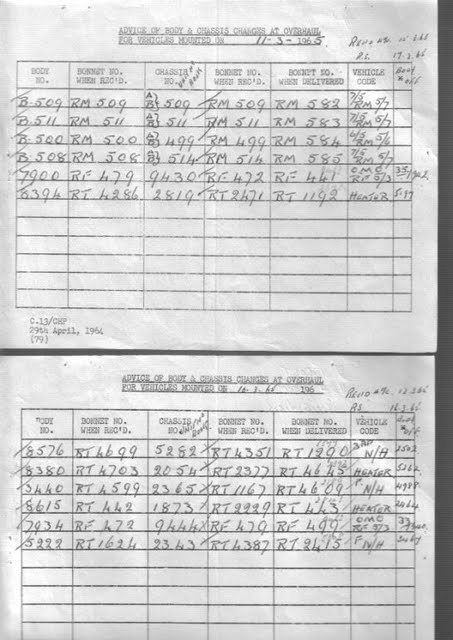 ADVICE OF BODY & CHASSIS CHARGES AT OVERHAUL
FOR VEHICLES MOUNTED ON 11-3-1965
17.3.65
BODY NO. BONNET NO. WHEN REC'D. CHASSIS NO. BONNET NO. WHEN REC'D. BONNET NO. WHEN DELIVERED VEHICLE CODE
B-509 RM 509 A/B} 509 RM 509 RM 582 7/5 RM 5/7
B-511 RM 511 A/B} 511 RM 511 RM 583 7/5 RM 6/7
B-500 RM 500 A/B} 499 RM 499 RM 584 6/5 RM 5/6
B-508 RM 508 A/B} 514 RM 514 RM 585 7/5 RM 5/7
7900 RF 479 9430 RF 472 RF 441 OMO RF 5/3
8394 RT 4286 2819 RT 2471 RT 1192 HEATER
C.13/CHP
29th April, 1964
(79)
ADVICE OF BODY & CHASSIS CHANGES AT OVERHAUL
FOR VEHICLES MOUNTED ON 196
BODY NO. BONNET NO. WHEN REC'D. CHASSIS NO. BONNET NO. WHEN REC'D. BONNET NO. WHEN DELIVERED VEHICLE CODE
8576 RT 4699 5282 RT 4351 RT 1290 N/H
8380 RT 4703 2054 RT 2377 RT 4645 HEATER
3440 RT 4599 2365 RT 1167 RT 4609 N/H
8615 RT 442 1873 RT 2229 RT 443 HEATER 2464
7934 RF 472 9444 RF 479 RF 499 OMO RF 5/3
5222 RT 1624 2343 RT 4387 RT 2415 N/H